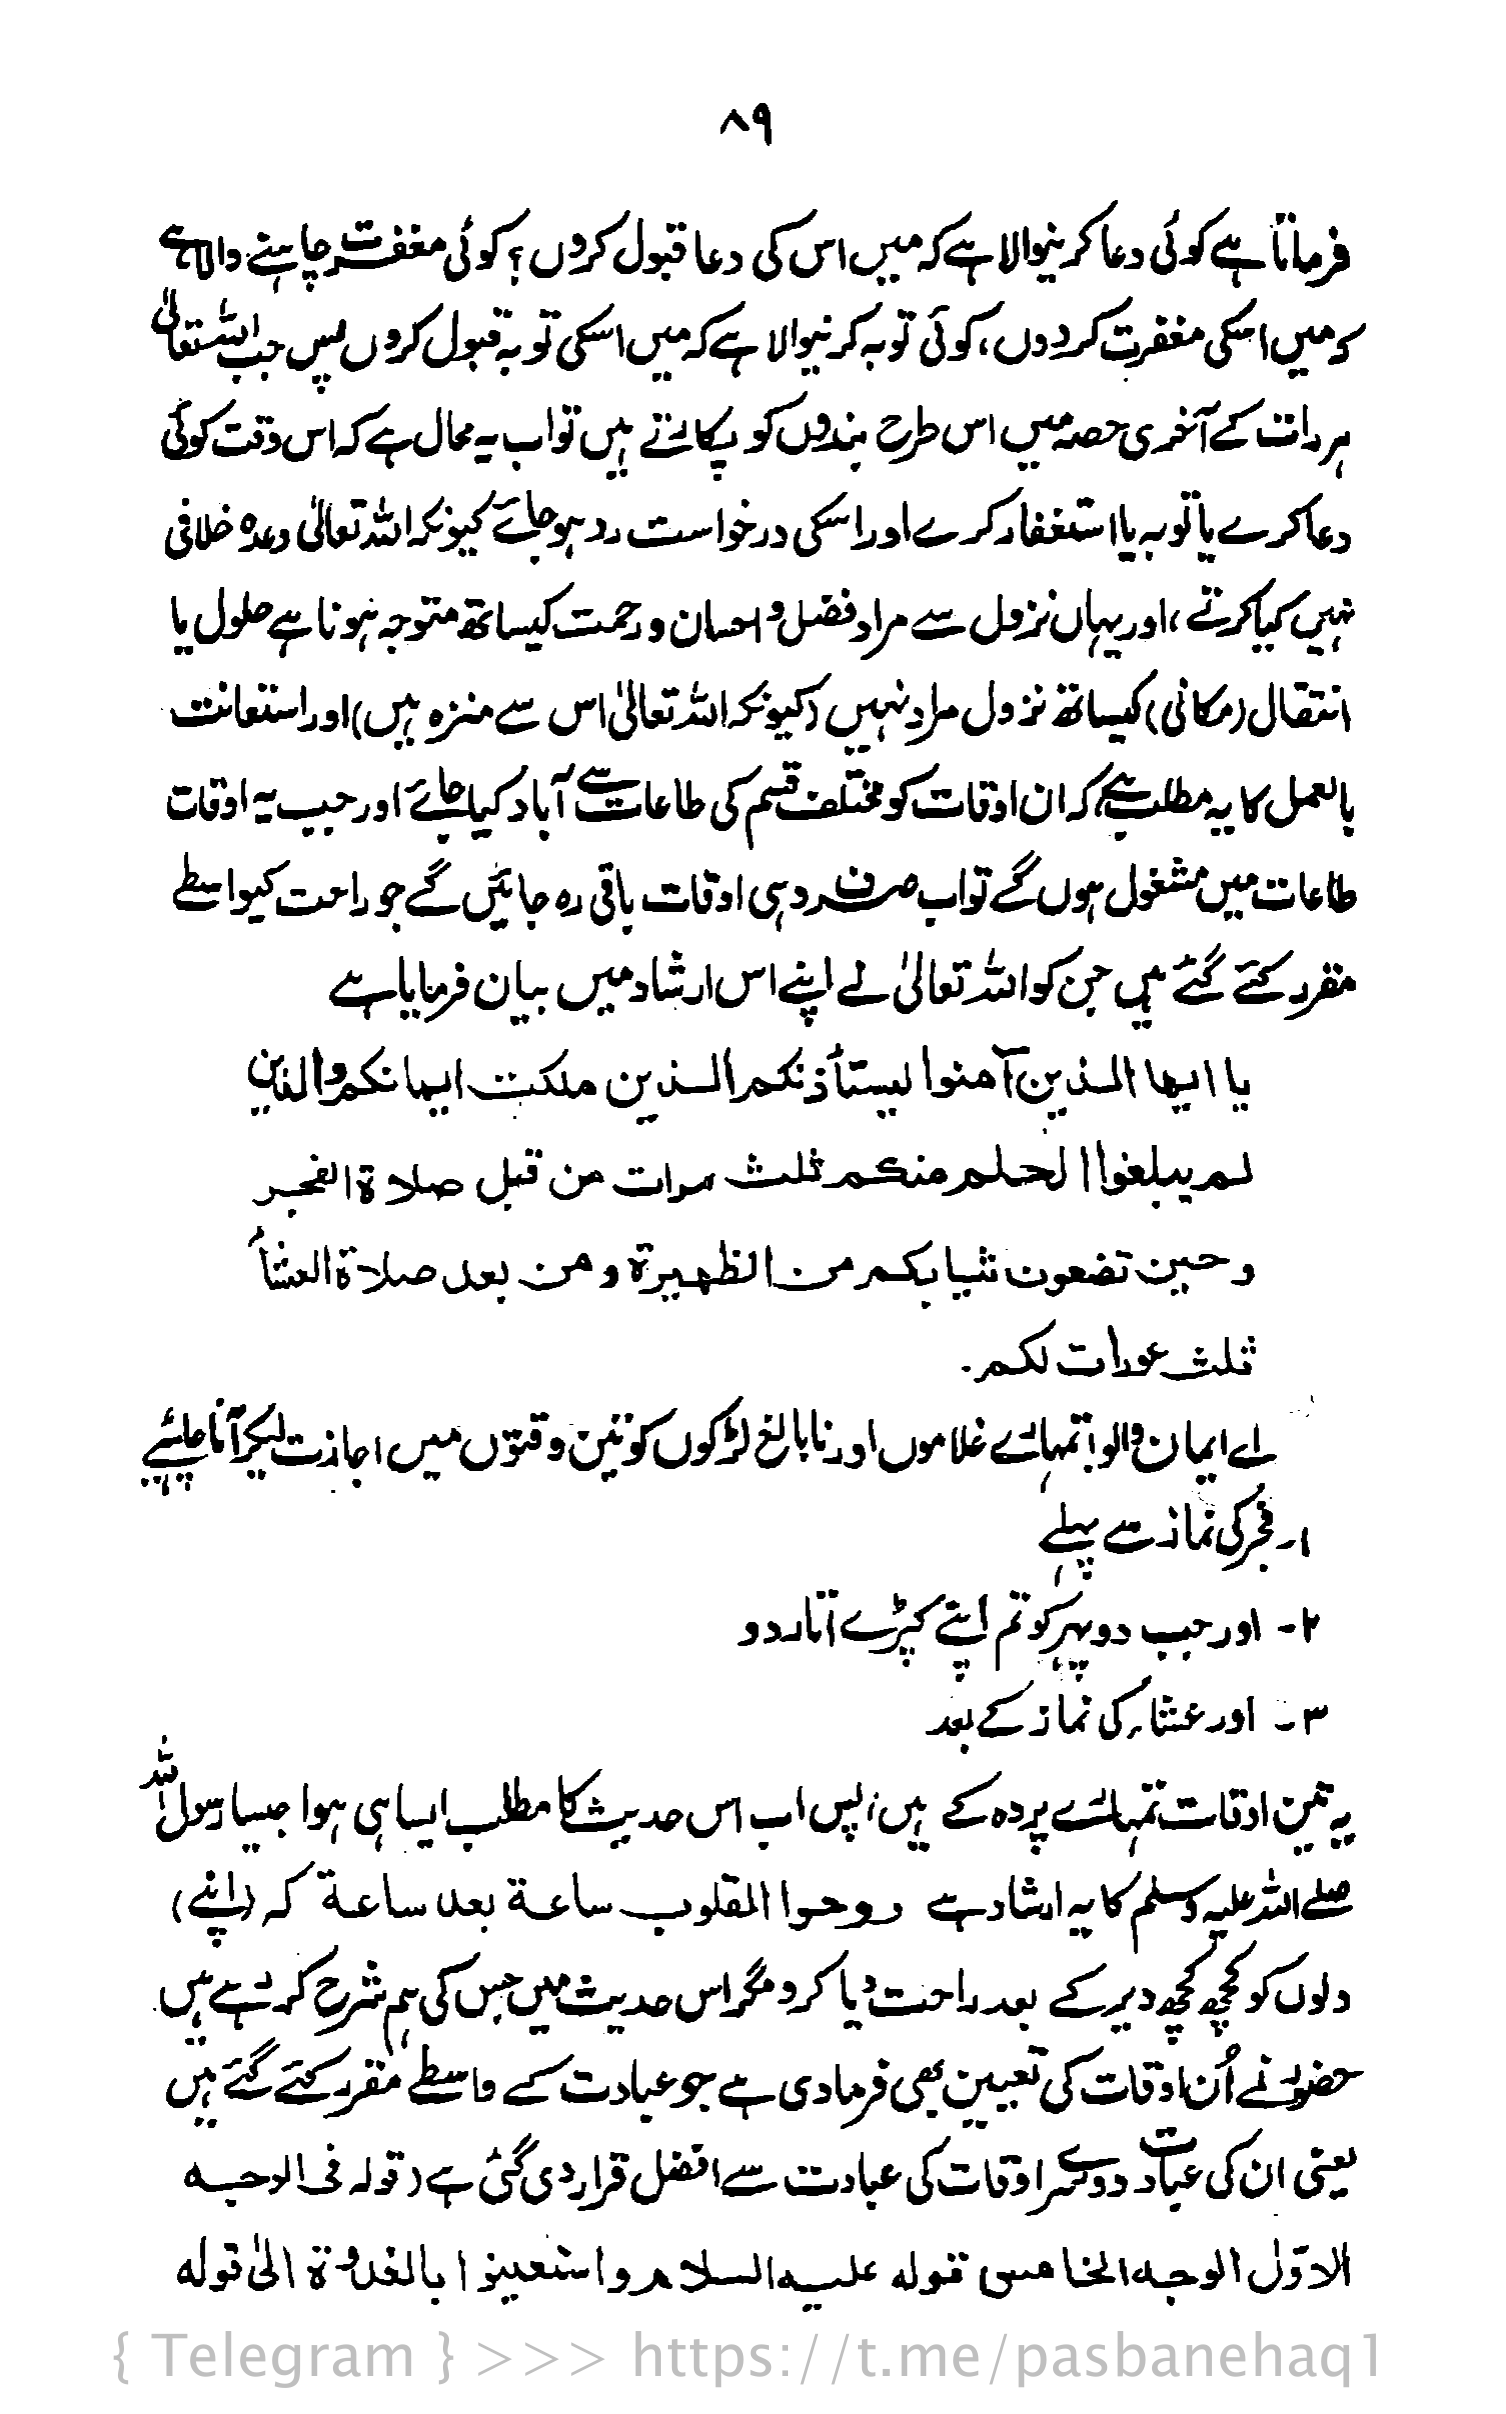 ۸۹
فرماتا ہے کوئی دعا کرنیوالا ہے کہ میں اس کی دعا قبول کروں؟ کوئی مغفرت چاہنے والا ہے
کہ میں اسکی مغفرت کردوں، کوئی توبہ کرنیوالا ہے کہ میں اسکی توبہ قبول کروں پس جب اللہ تعالیٰ
ہر رات کے آخری حصہ میں اس طرح بندوں کو پکارتے ہیں تو اب یہ محال ہے کہ اس وقت کوئی
دعا کرے یا توبہ یا استغفار کرے اور اسکی درخواست رد ہو جائے کیونکہ اللہ تعالیٰ وعدہ خلافی
نہیں کیا کرتے، اور یہاں نزول سے مراد فضل و احسان و رحمت کیساتھ متوجہ ہونا ہے حلول یا
انتقال (مکانی) کیساتھ نزول مراد نہیں (کیونکہ اللہ تعالیٰ اس سے منزہ ہیں) اور استعانت
بالعمل کا یہ مطلب ہے کہ ان اوقات کو مختلف قسم کی طاعات سے آباد کیا جائے اور جب یہ اوقات
طاعات میں مشغول ہوں گے تو اب صرف وہی اوقات باقی رہ جائیں گے جو راحت کیواسطے
مقرر کئے گئے ہیں جن کو اللہ تعالیٰ نے اپنے اس ارشاد میں بیان فرمایا ہے
یا ایہا الذین آمنوا لیستأذنکم الذین ملکت ایمانکم والذین
لم یبلغوا الحلم منکم ثلث مرات من قبل صلاة الفجر
وحین تضعون ثیابکم من الظهیرة ومن بعد صلاة العشاء
ثلث عورات لکم۔
اے ایمان والو! تمہارے غلاموں اور نابالغ لڑکوں کو تین وقتوں میں اجازت لیکر آنا چاہئے
۱۔ فجر کی نماز سے پہلے
۲۔ اور جب دوپہر کو تم اپنے کپڑے اتار دو
۳۔ اور عشاء کی نماز کے بعد
یہ تین اوقات تمہارے پردہ کے ہیں، پس اب اس حدیث کا مطلب ایسا ہی ہوا جیسا رسول اللہ
صلے اللہ علیہ وسلم کا یہ ارشاد ہے روحوا القلوب ساعة بعد ساعة کہ (اپنے)
دلوں کو کچھ کچھ دیر کے بعد راحت دیا کرو مگر اس حدیث میں جس کی ہم شرح کر رہے ہیں
حضورؐ نے اُن اوقات کی تعیین بھی فرما دی ہے جو عبادت کے واسطے مقرر کئے گئے ہیں
یعنی ان کی عبادت دوسرے اوقات کی عبادت سے افضل قرار دی گئی ہے (قولہ فی الوجہ
الاوّل الوجہ الخامس قولہ علیہ السلام واستعینوا بالغدوة الیٰ قولہ
{ Telegram } >>> https://t.me/pasbanehaq1